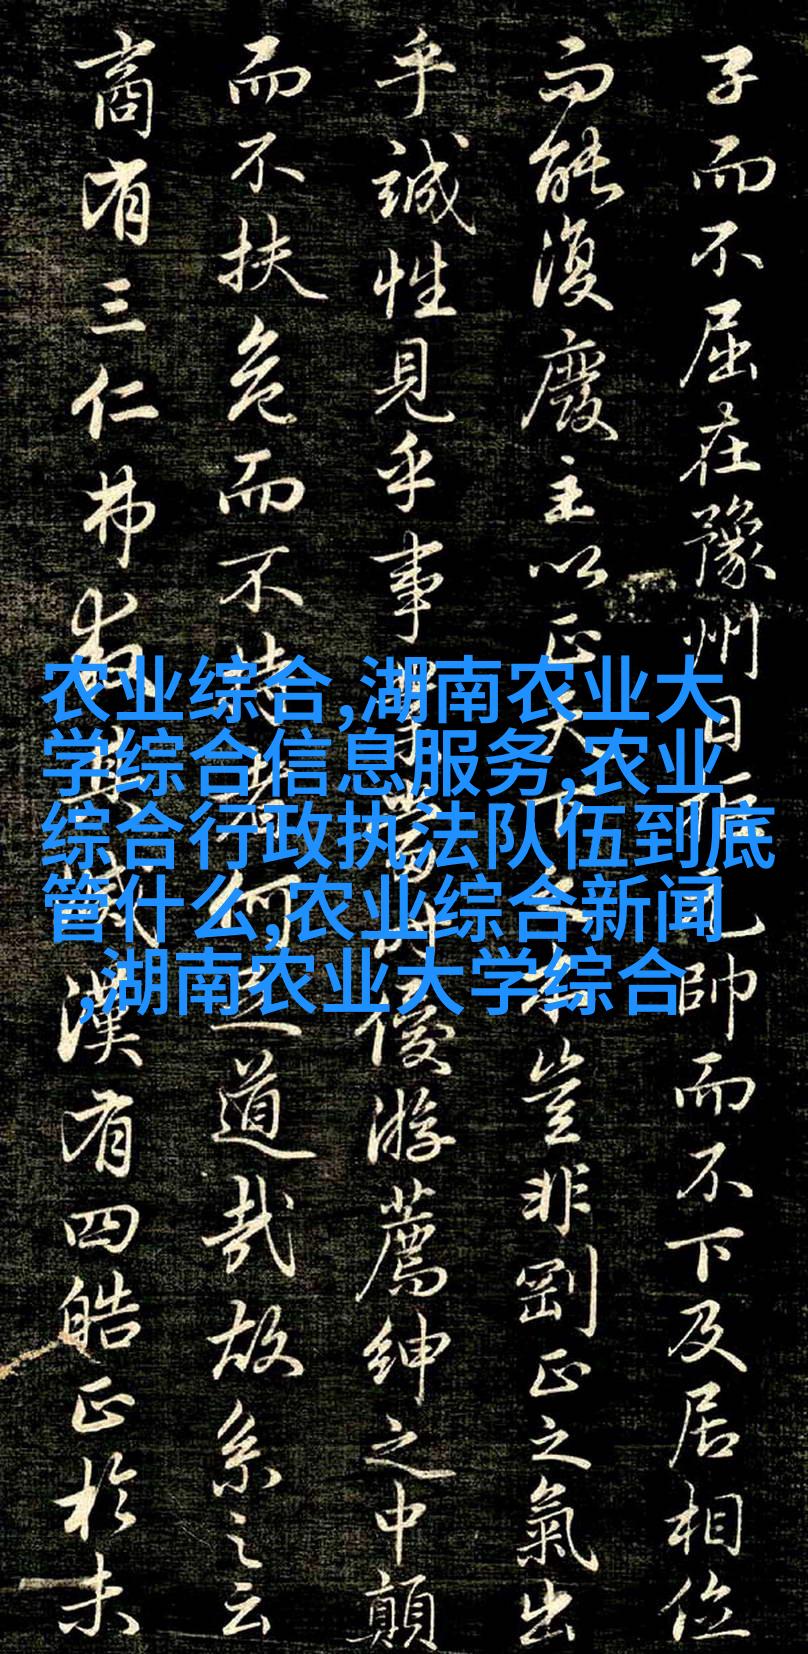 子而不屈在豫州日拒元帥而不下及居相位
而能復廢主以正天下之本豈非剛正之氣出
乎誠性見乎事業當時優游薦紳之中顛
而不扶危而不持者何足道哉故系之云
商有三仁弗救其滅漢有四皓正於未
农业综合,湖南农业大
学综合信息服务,农业
综合行政执法队伍到底
管什么,农业综合新闻
,湖南农业大学综合